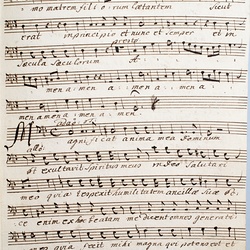 mo matrem fili orum lætantem Sicut
erat in principio et nunc et semper et in
presto
sæcula sæculorum A
mena mena mena mena
mena mena mena men.
Magnificat anima mea Dominum
allo:
et exultavit Spiritus meus in Deo Salutari
meo quia respexit humilitatem ancillæ suæ
ce enim ex hoc beatam me dicent omnes generati
quia fecit mihi magna qui potens est et